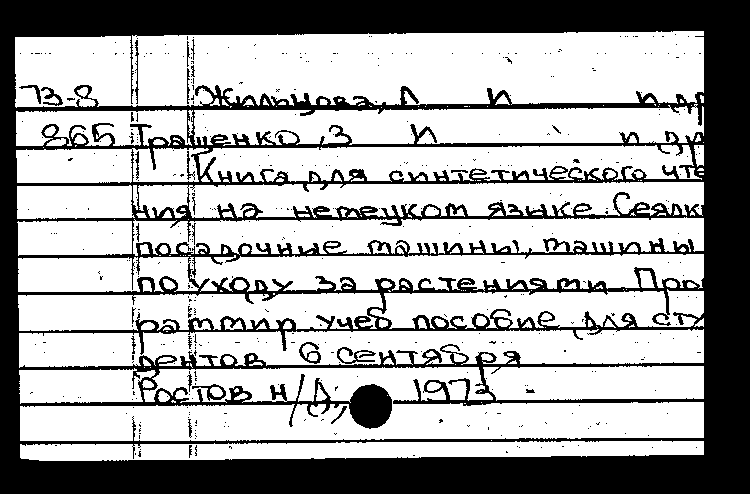 73-8 Жильцова, Л И и др
865 Тращенко, З И и др
Книга для синтетического чте
ния на немецком языке. Сеялк
посадочные машины, машины
по уходу за растениями Прог
раммир учеб пособие для сту
дентов 6 сентября
Ростов н/Д, 1973 -